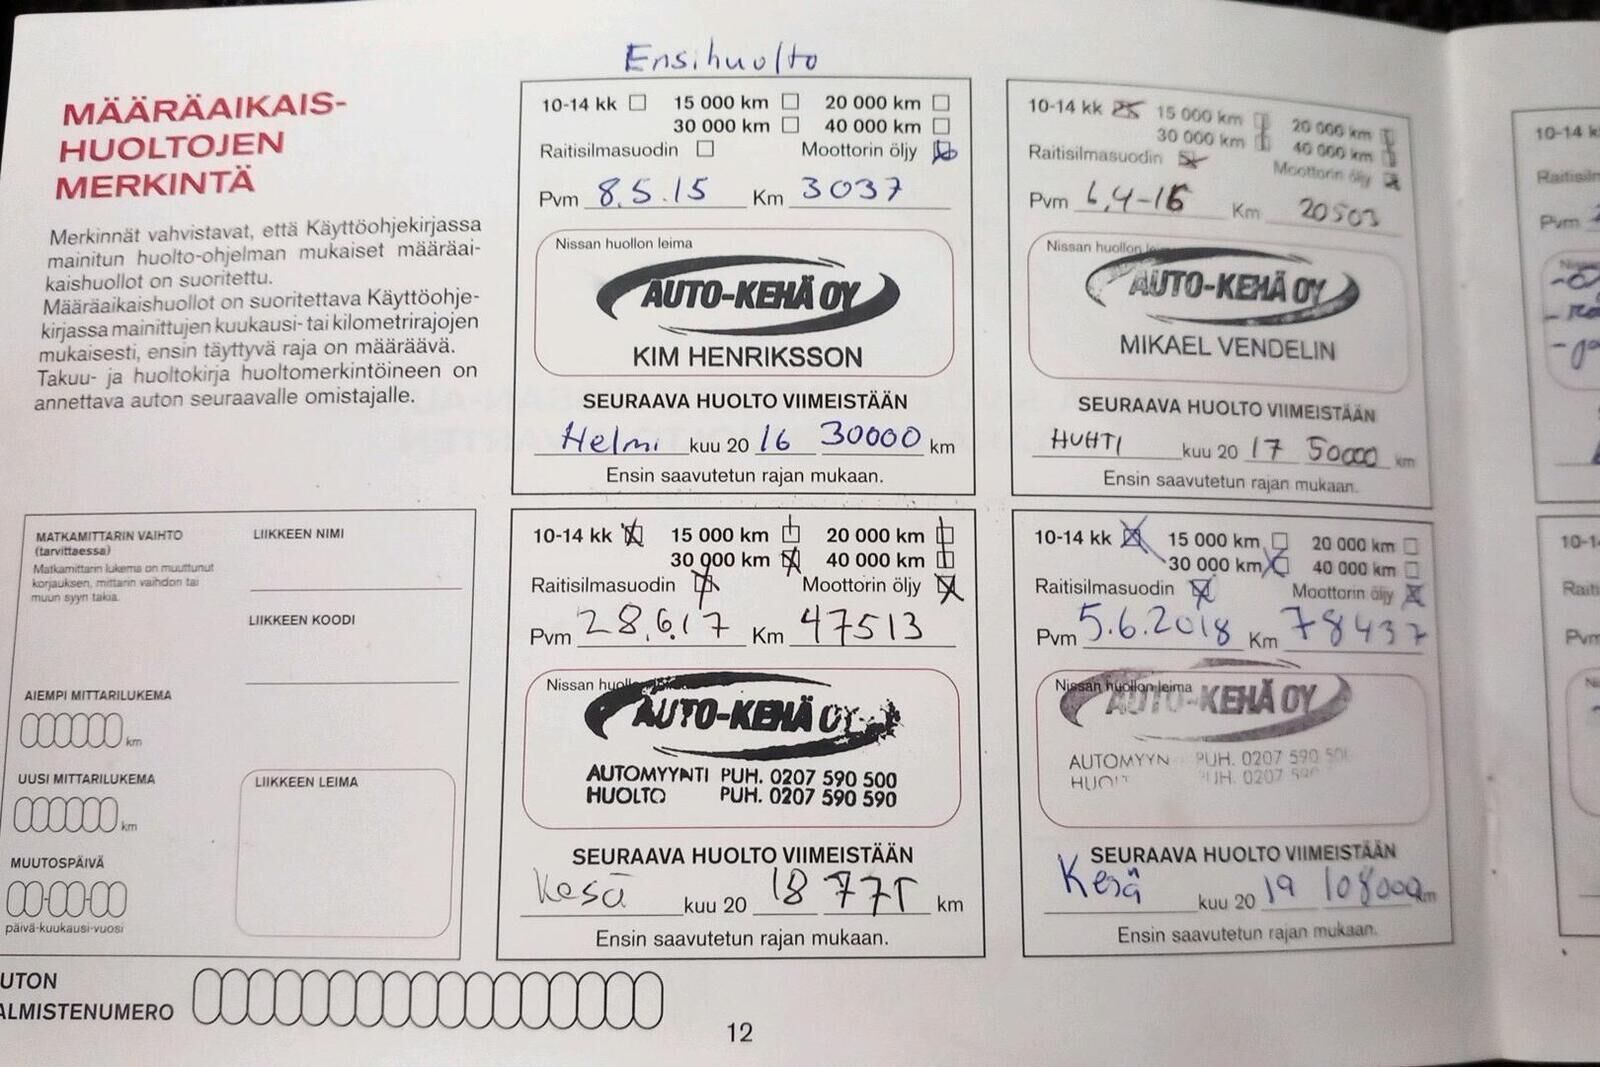 MÄÄRÄAIKAIS-
HUOLTOJEN
MERKINTÄ
Merkinnät vahvistavat, että Käyttöohjekirjassa
mainitun huolto-ohjelman mukaiset määräai-
kaishuollot on suoritettu.
Määräaikaishuollot on suoritettava Käyttöohje-
kirjassa mainittujen kuukausi- tai kilometrirajojen
mukaisesti, ensin täyttyvä raja on määräävä.
Takuu- ja huoltokirja huoltomerkintöineen on
annettava auton seuraavalle omistajalle.
Ensihuolto
10-14 kk 15 000 km 20 000 km
30 000 km 40 000 km
Raitisilmasuodin Moottorin öljy
Pvm 8.5.15 Km 3037
Nissan huollon leima
AUTO-KEHÄ OY
KIM HENRIKSSON
SEURAAVA HUOLTO VIIMEISTÄÄN
Helmi kuu 20 16 30000 km
Ensin saavutetun rajan mukaan.
10-14 kk 15 000 km 20 000 km
30 000 km 40 000 km
Raitisilmasuodin Moottorin öljy
Pvm 6,4-16 Km 20503
Nissan huollon leima
AUTO-KEHÄ OY
MIKAEL VENDELIN
SEURAAVA HUOLTO VIIMEISTÄÄN
HUHTI kuu 20 17 50000 km
Ensin saavutetun rajan mukaan.
MATKAMITTARIN VAIHTO
(tarvittaessa)
Matkamittarin lukema on muuttunut
korjauksen, mittarin vaihdon tai
muun syyn takia.
LIIKKEEN NIMI
LIIKKEEN KOODI
AIEMPI MITTARILUKEMA
km
UUSI MITTARILUKEMA
km
MUUTOSPÄIVÄ
päivä-kuukausi-vuosi
LIIKKEEN LEIMA
10-14 kk 15 000 km 20 000 km
30 000 km 40 000 km
Raitisilmasuodin Moottorin öljy
Pvm 28.6.17 Km 47513
Nissan huollon leima
AUTO-KEHÄ OY
AUTOMYYNTI PUH. 0207 590 500
HUOLTO PUH. 0207 590 590
SEURAAVA HUOLTO VIIMEISTÄÄN
Kesä kuu 20 18 77T km
Ensin saavutetun rajan mukaan.
10-14 kk 15 000 km 20 000 km
30 000 km 40 000 km
Raitisilmasuodin Moottorin öljy
Pvm 5.6.2018 Km 78437
Nissan huollon leima
AUTO-KEHÄ OY
AUTOMYYN PUH. 0207 590 500
0207 590
SEURAAVA HUOLTO VIIMEISTÄÄN
Kesä kuu 20 19 108000 km
Ensin saavutetun rajan mukaan.
UTON
ALMISTENUMERO
12
10-14 k
Raitisiln
Pvm
10-1
Raiti
Pvm